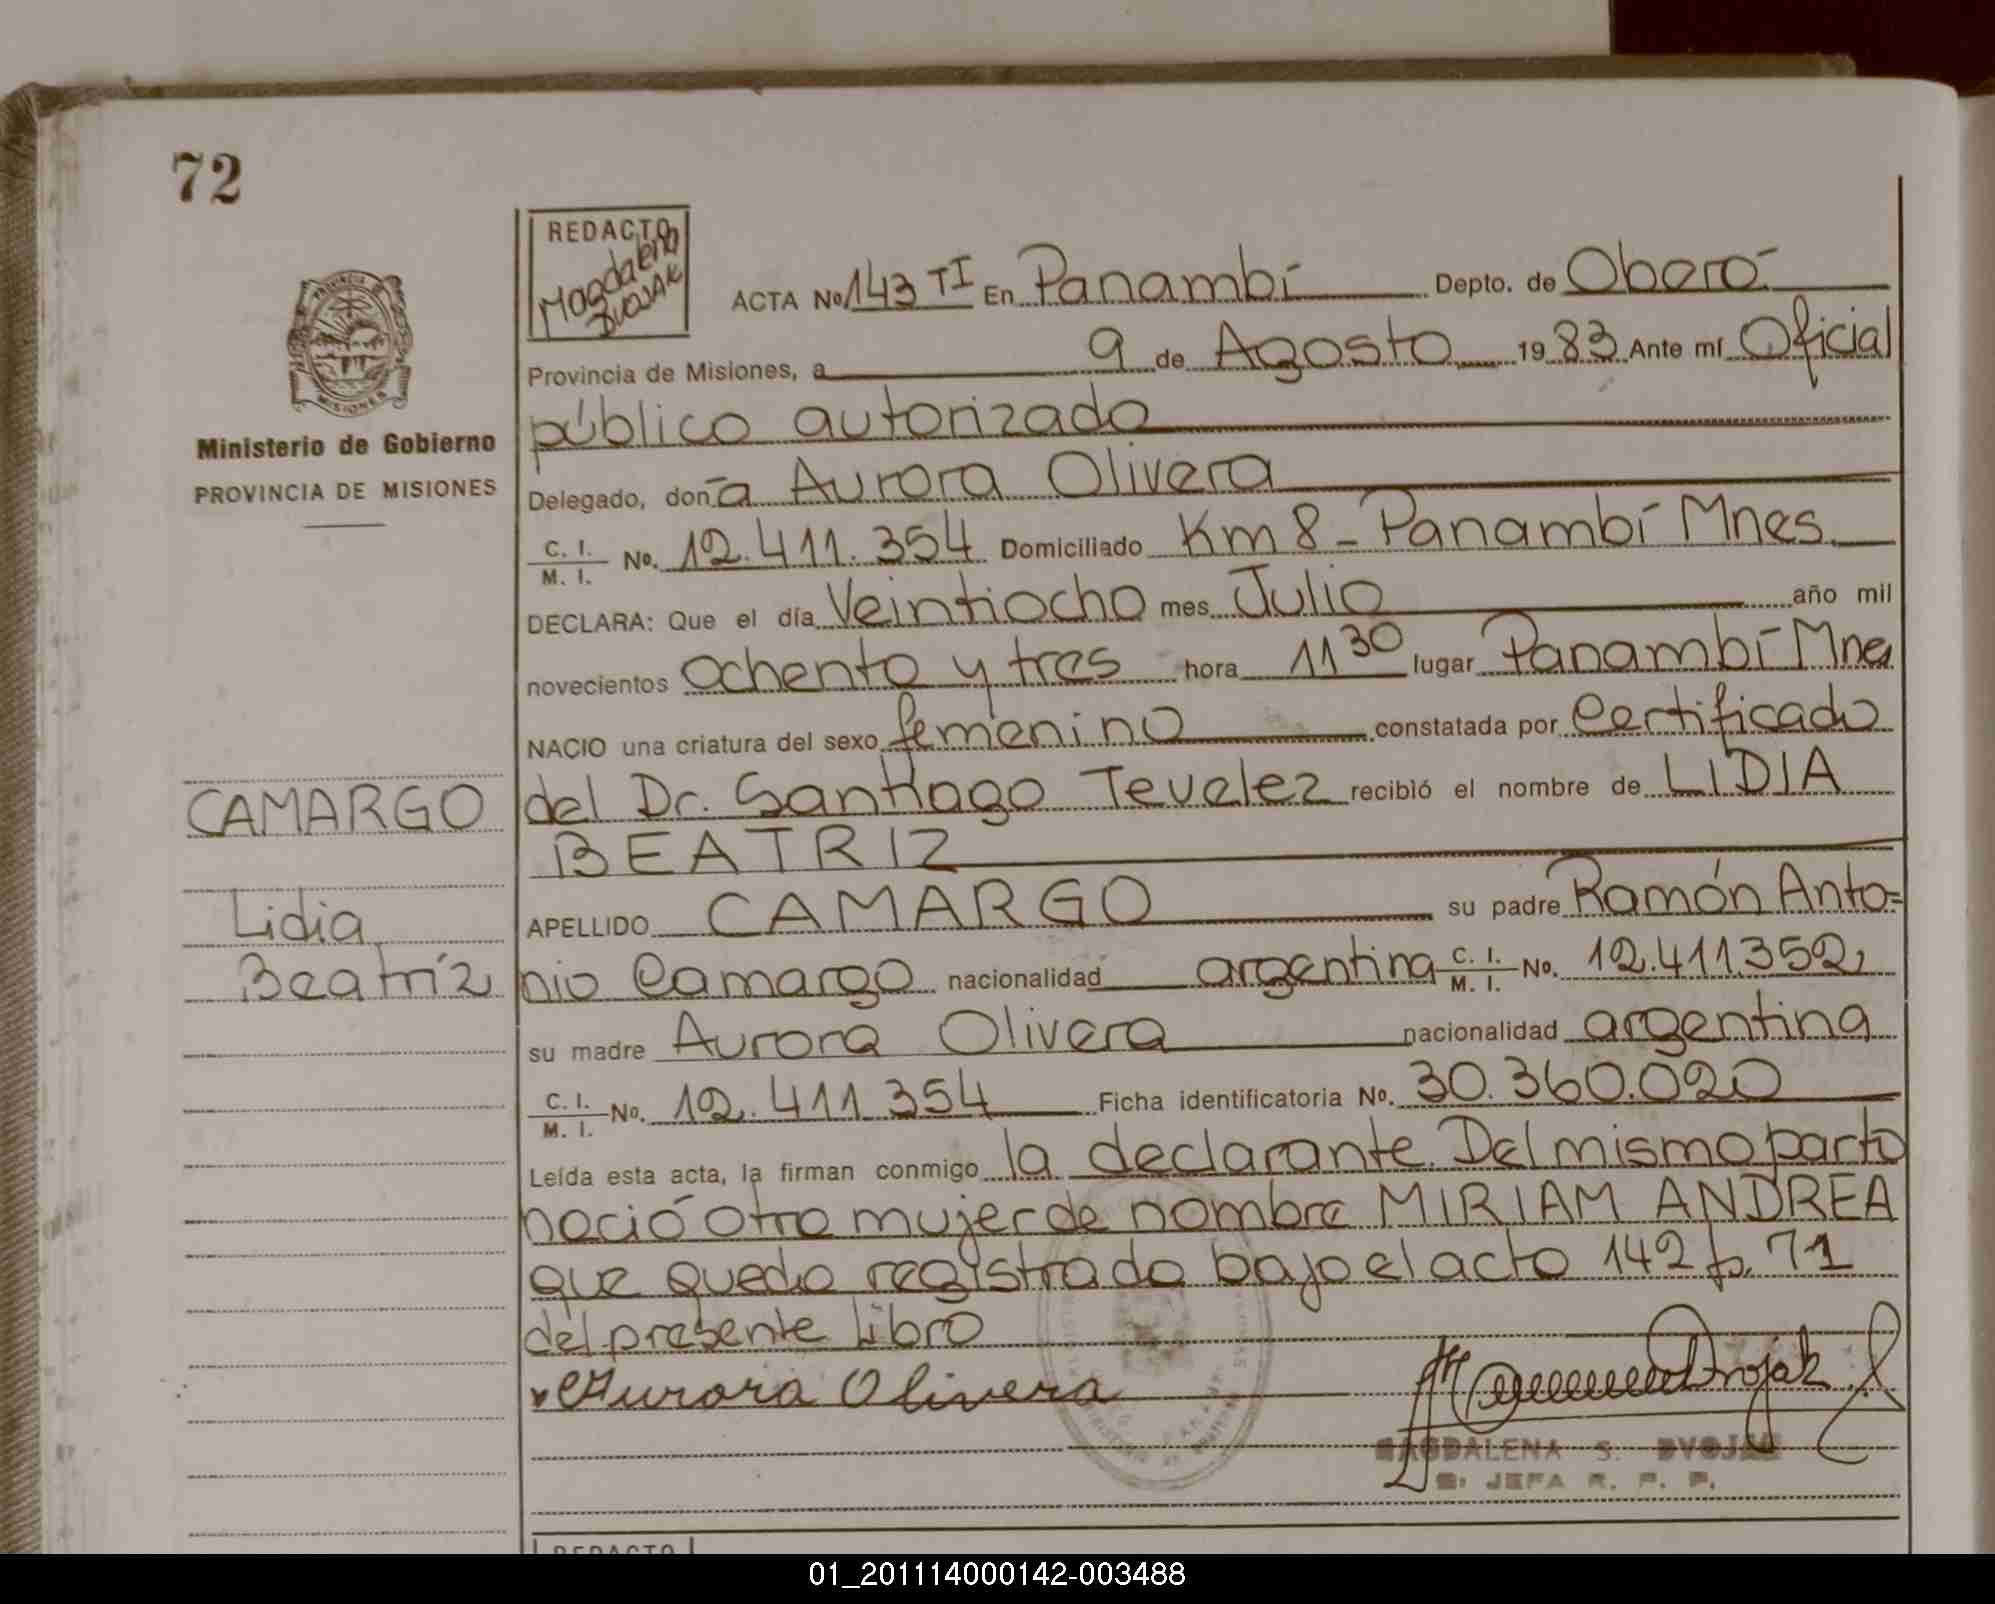 72
REDACTO
Magdalena
DVOJAK
ACTA No 143 TI En Panambí Depto. de Oberá
Provincia de Misiones, a 9 de Agosto 1983 Ante mí Oficial
público autorizado
Delegado, don a Aurora Olivera
C. I. / M. I. No. 12.411.354 Domiciliado Km 8 - Panambí Mnes.
DECLARA: Que el día Veintiocho mes Julio año mil
novecientos ochenta y tres hora 11 30 lugar Panambí Mnes
NACIO una criatura del sexo femenino constatada por Certificado
del Dr. Santiago Tevelez recibió el nombre de LIDIA
BEATRIZ
APELLIDO CAMARGO su padre Ramón Anto=
nio Camargo nacionalidad argentina C. I. / M. I. No. 12.411.352
su madre Aurora Olivera nacionalidad argentina
C. I. / M. I. No. 12.411.354 Ficha identificatoria No. 30.360.020
Leída esta acta, la firman conmigo la declarante. Del mismo parto
nació otra mujer de nombre MIRIAM ANDREA
que queda registrada bajo el acta 142 fo. 71
del presente libro
Aurora Olivera
Dvojak
MAGDALENA S. DVOJAK
JEFA R. P. P.
Ministerio de Gobierno
PROVINCIA DE MISIONES
CAMARGO
Lidia
Beatríz
PROVINCIA DE
MISIONES
REDACTO
01_201114000142-003488